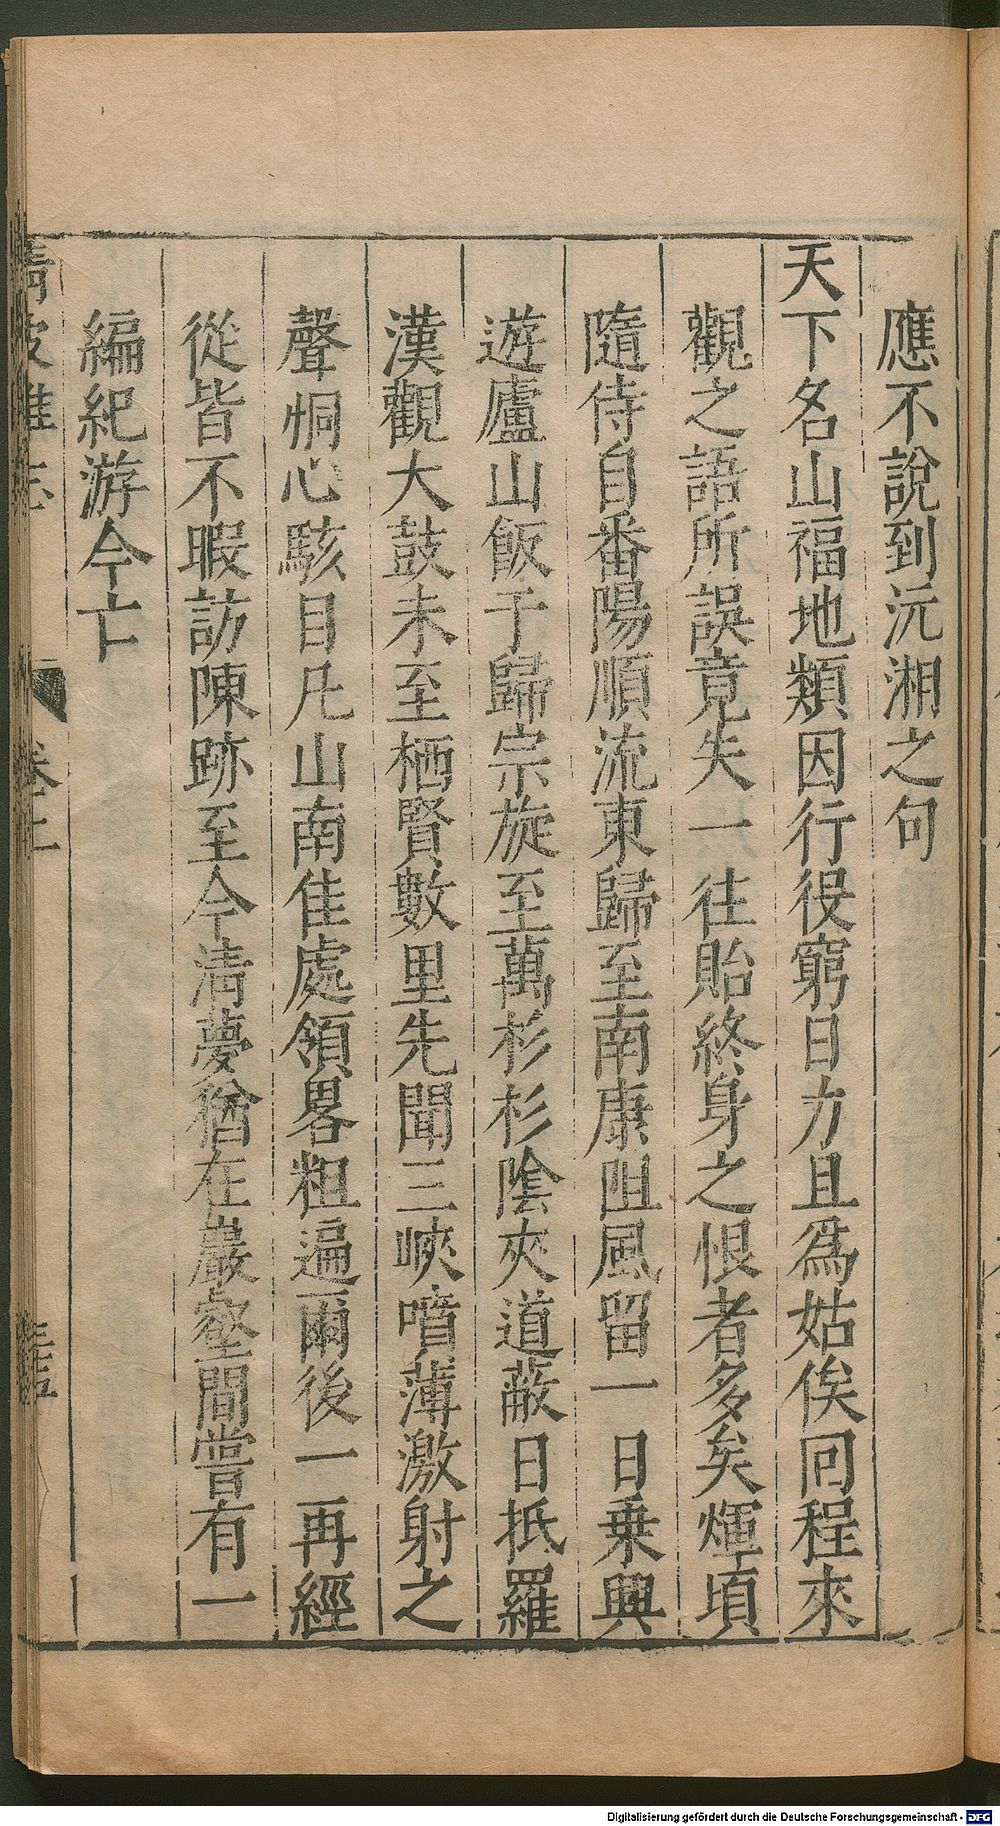 應不說到沅湘之句
天下名山福地類因行役窮日力且爲姑俟囘程來
觀之語所誤竟失一往貽終身之恨者多矣煇頃
隨侍自番陽順流東歸至南康阻風留一日乗興
遊廬山飯于歸宗旋至萬杉杉陰夾道蔽日抵羅
漢觀大鼓未至栖賢數里先聞三峽噴薄激射之
聲恫心駭目凡山南佳處領畧粗遍爾後一再經
從皆不暇訪陳跡至今淸夢猶在巖壑間嘗有一
編紀游今亡
清波雜志
卷十
Digitalisierung gefördert durch die Deutsche Forschungsgemeinschaft - DFG